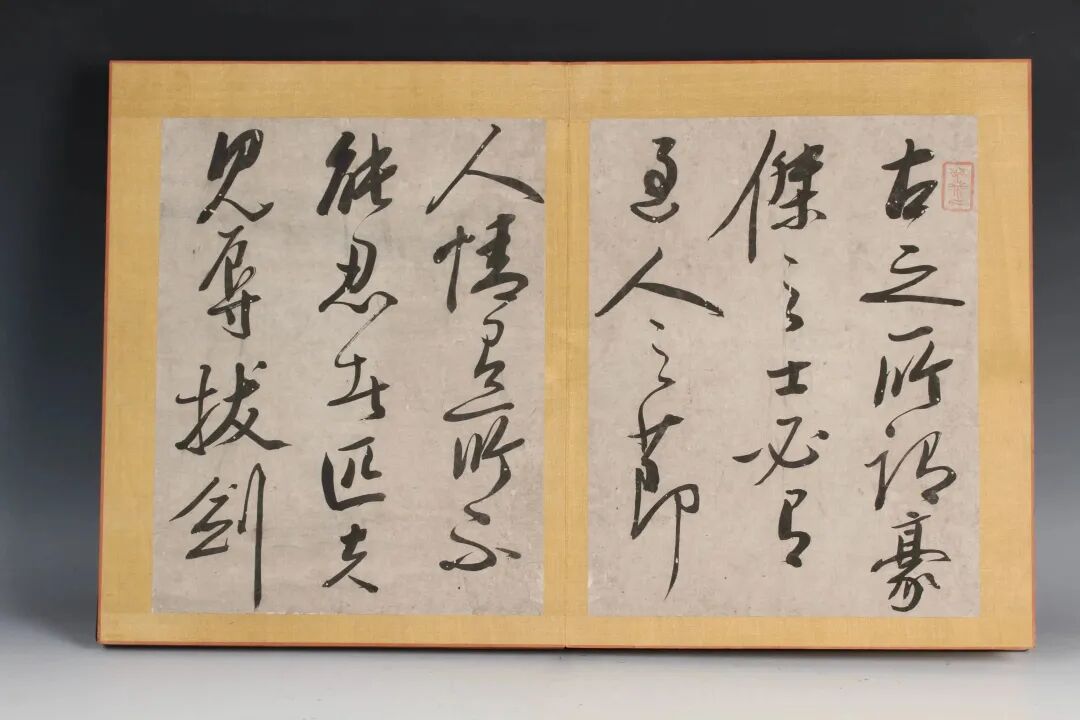 古之所謂豪
傑之士必有
過人之節
人情所不
能忍者匹夫
見辱拔劍